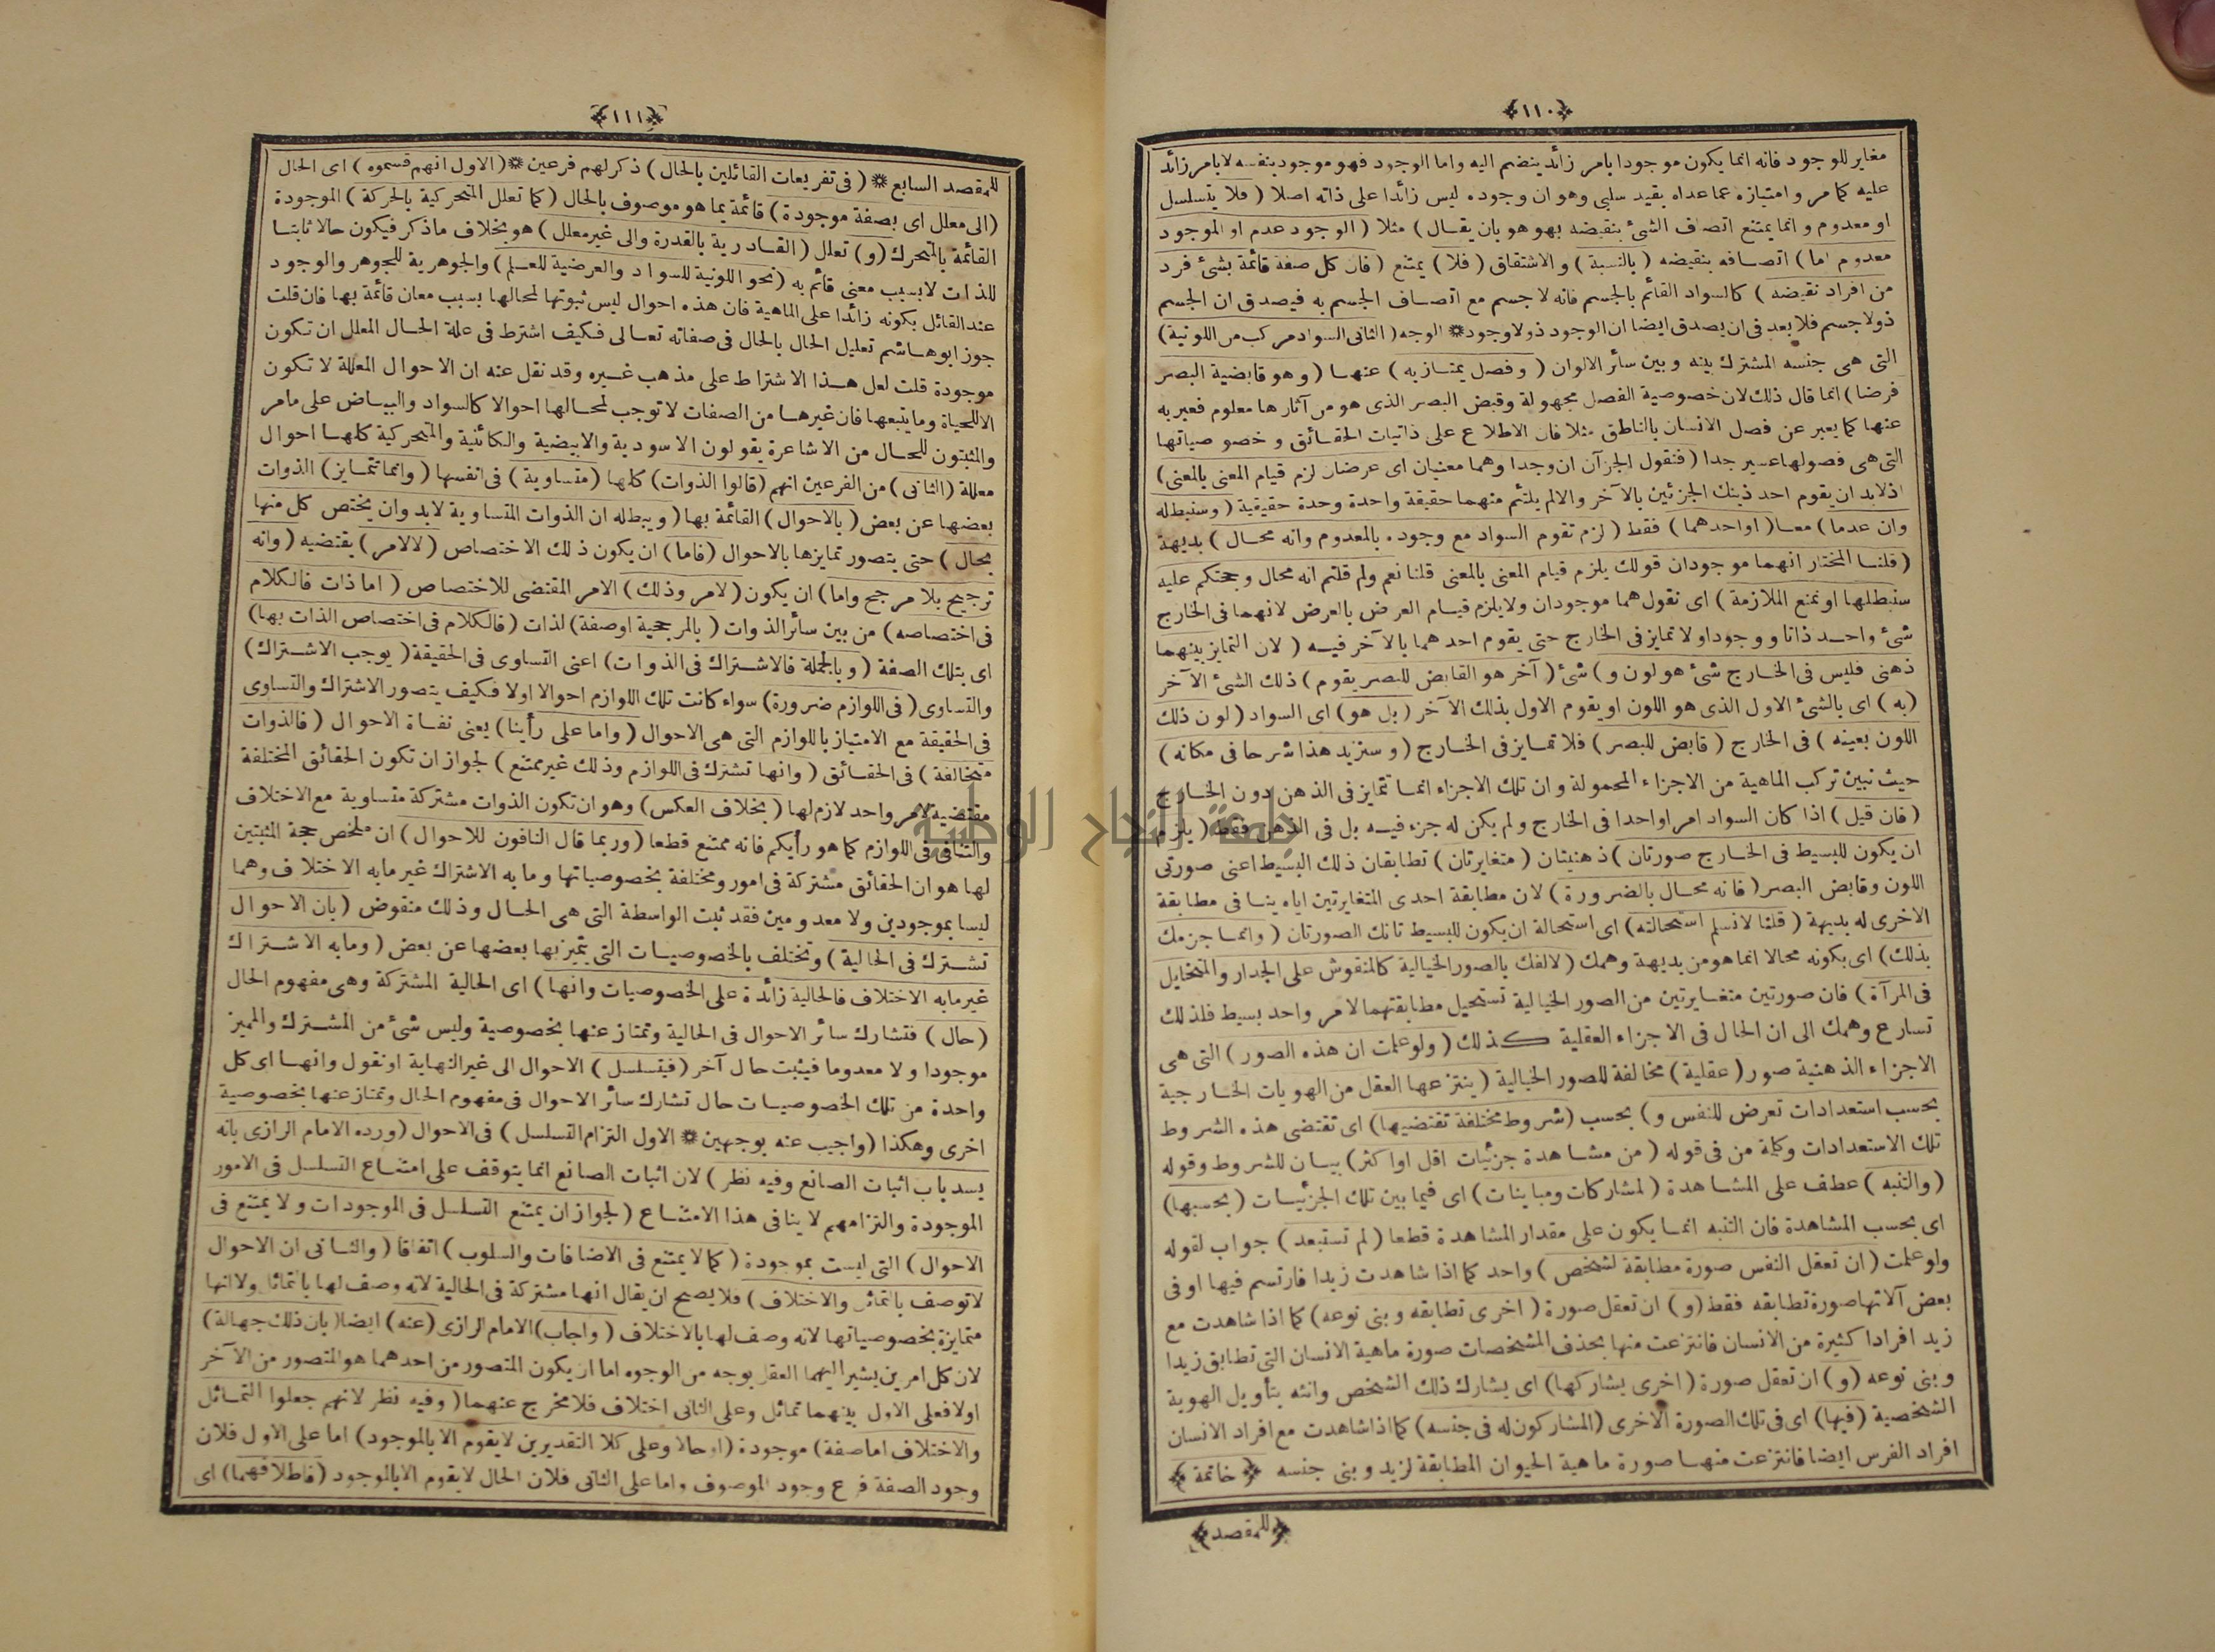 ﴿١١٠﴾
مغاير للوجود فانه انما يكون موجودا بامر زائد ينضم اليه واما الوجود فهو موجود بنفسه لا بامر زائد
عليه كما مر وامتيازه عما عداه بقيد سلبى وهو ان وجوده ليس زائدا على ذاته اصلا ( فلا يتسلسل
او معدوم وانما يمتنع اتصاف الشئ بنقيضه بهو هو بان يقال ) مثلا ( الوجود عدم او الموجود
معدوم اما ) اتصافه بنقيضه ( بالنسبة ) والاشتقاق ( فلا ) يمتنع ( فان كل صفة قائمة بشئ فرد
من افراد نقيضه ) كالسواد القائم بالجسم فانه لا جسم مع اتصاف الجسم به فيصدق ان الجسم
ذولا جسم فلا يعد فى ان يصدق ايضا ان الوجود ذولا وجود * الوجه ( الثانى السواد مركب من اللونية )
التى هى جنسه المشترك بينه وبين سائر الالوان ( وفصل يمتاز به ) عنها ( وهو قابضية البصر
فرضا ) انما قال ذلك لان خصوصية الفصل مجهولة وقبض البصر الذى هو من آثارها معلوم فعبر به
عنها كما يعبر عن فصل الانسان بالناطق مثلا فان الاطلاع على ذاتيات الحقائق وخصوصياتها
التى هى فصولها عسير جدا ( فنقول الجزآن ان وجدا وهما معنيان اى عرضان لزم قيام المعنى بالمعنى )
اذلابد ان يقوم احد ذينك الجزئين بالآخر والالم يلتئم منهما حقيقة واحدة وحدة حقيقية ( وسنبطله
وان عدما ) معا ( او احدهما ) فقط ( لزم تقوم السواد مع وجوده بالمعدوم وانه محال ) بديهة
( قلنا المختار انهما موجودان قولك يلزم قيام المعنى بالمعنى قلنا نعم ولم قلتم انه محال وحجتكم عليه
سنبطلها او نمنع الملازمة ) اى نقول هما موجودان ولا يلزم قيام العرض بالعرض لانهما فى الخارج
شئ واحد ذاتا ووجودا ولا تمايز فى الخارج حتى يقوم احدهما بالآخر فيه ( لان التمايز بينهما
ذهنى فليس فى الخارج شئ هو لون و ) شئ ( آخر هو القابض للبصر يقوم ) ذلك الشئ الآخر
( به ) اى بالشئ الاول الذى هو اللون او يقوم الاول بذلك الآخر ( بل هو ) اى السواد ( لون ذلك
اللون بعينه ) فى الخارج ( قابض للبصر ) فلا تمايز فى الخارج ( وسنزيد هذا شرحا فى مكانه )
حيث نبين تركب الماهية من الاجزاء المحمولة وان تلك الاجزاء انما تتمايز فى الذهن دون الخارج
( فان قيل ) اذا كان السواد امرا واحدا فى الخارج ولم يكن له جزء فيه بل فى الذهن فقط ( يلزم
ان يكون للبسيط فى الخارج صورتان ) ذهنيتان ( متغايرتان ) تطابقان ذلك البسيط اعنى صورتى
اللون وقابض البصر ( فانه محال بالضرورة ) لان مطابقة احدى المتغايرتين اياه ينافى مطابقة
الاخرى له بديهة ( قلنا لا نسلم استحالته ) اى استحالة ان يكون للبسيط تانك الصورتان ( وانما جزمك
بذلك ) اى بكونه محالا انما هو من بديهة وهمك ( لالفك بالصور الخيالية كالمنقوش على الجدار والمتخايل
فى المرآة ) فان صورتين متغايرتين من الصور الخيالية تستحيل مطابقتهما لامر واحد بسيط فلذلك
تسارع وهمك الى ان الحال فى الاجزاء العقلية كذلك ( ولو علمت ان هذه الصور ) التى هى
الاجزاء الذهنية صور ( عقلية ) مخالفة للصور الخيالية ( ينتزعها العقل من الهويات الخارجية
بحسب استعدادات تعرض للنفس و ) بحسب ( شروط مختلفة تقتضيها ) اى تقتضى هذه الشروط
تلك الاستعدادات وكلمة من فى قوله ( من مشاهدة جزئيات اقل او اكثر ) بيان للشروط وقوله
( والتنبه ) عطف على المشاهدة ( لمشاركات ومباينات ) اى فيما بين تلك الجزئيات ( بحسبها )
اى بحسب المشاهدة فان التنبه انما يكون على مقدار المشاهدة قطعا ( لم تستبعد ) جواب لقوله
ولو علمت ( ان تعقل النفس صورة مطابقة لشخص ) واحد كما اذا شاهدت زيدا فارتسم فيها او فى
بعض آلاتها صورة تطابقه فقط ( و ) ان تعقل صورة ( اخرى تطابقه وبنى نوعه ) كما اذا شاهدت مع
زيد افرادا كثيرة من الانسان فانتزعت منها بحذف المشخصات صورة ماهية الانسان التى تطابق زيدا
وبنى نوعه ( و ) ان تعقل صورة ( اخرى يشاركها ) اى يشارك ذلك الشخص وانثه بتأويل الهوية
الشخصية ( فيها ) اى فى تلك الصورة الاخرى ( المشاركون له فى جنسه ) كما اذا شاهدت مع افراد الانسان
افراد الفرس ايضا فانتزعت منها صورة ماهية الحيوان المطابقة لزيد وبنى جنسه ﴿ خاتمة ﴾
﴿للمقصد﴾
﴿١١١﴾
للمقصد السابع * ( فى تفريعات القائلين بالحال ) ذكر لهم فرعين * ( الاول انهم قسموه ) اى الحال
( الى معلل اى بصفة موجودة ) قائمة بما هو موصوف بالحال ( كما تعلل المتحركية بالحركة ) الموجودة
القائمة بالمتحرك ( و ) تعلل ( القادرية بالقدرة والى غير معلل ) هو بخلاف ما ذكر فيكون حالا ثابتا
للذات لا بسبب معنى قائم به ( نحو اللونية للسواد والعرضية للعلم ) والجوهرية للجوهر والوجود
عند القائل بكونه زائدا على الماهية فان هذه احوال ليس ثبوتها لمحالها بسبب معان قائمة بها فان قلت
جوز ابو هاشم تعليل الحال بالحال فى صفاته تعالى فكيف اشترط فى علة الحال المعلل ان تكون
موجودة قلت لعل هذا الاشتراط على مذهب غيره وقد نقل عنه ان الاحوال المعللة لا تكون
الا للحياة وما يتبعها فان غيرها من الصفات لا توجب لمحالها احوالا كالسواد والبياض على مامر
والمثبتون للحال من الاشاعرة يقولون الاسودية والابيضية والكائنية والمتحركية كلها احوال
معللة ( الثانى ) من الفرعين انهم ( قالوا الذوات ) كلها ( متساوية ) فى انفسها ( وانما تتمايز ) الذوات
بعضها عن بعض ( بالاحوال ) القائمة بها ( ويبطله ان الذوات المتساوية لابد وان يختص كل منها
بحال ) حتى يتصور تمايزها بالاحوال ( فاما ) ان يكون ذلك الاختصاص ( لالامر ) يقتضيه ( وانه
ترجيح بلا مرجح واما ) ان يكون ( لامر وذلك ) الامر المقتضى للاختصاص ( اما ذات فالكلام
فى اختصاصه ) من بين سائر الذوات ( بالمرجحية او صفة ) لذات ( فالكلام فى اختصاص الذات بها )
اى بتلك الصفة ( وبالجملة فالاشتراك فى الذوات ) اعنى التساوى فى الحقيقة ( يوجب الاشتراك )
والتساوى ( فى اللوازم ضرورة ) سواء كانت تلك اللوازم احوالا اولا فكيف يتصور الاشتراك والتساوى
فى الحقيقة مع الامتياز باللوازم التى هى الاحوال ( واما على رأينا ) يعنى نفاة الاحوال ( فالذوات
متخالفة ) فى الحقائق ( وانها تشترك فى اللوازم وذلك غير ممتنع ) لجواز ان تكون الحقائق المختلفة
مقتضية لامر واحد لازم لها ( بخلاف العكس ) وهو ان تكون الذوات مشتركة متساوية مع الاختلاف
والتنافى فى اللوازم كما هو رأيكم فانه ممتنع قطعا ( وربما قال النافون للاحوال ) ان ملخص حجة المثبتين
لها هو ان الحقائق مشتركة فى امور ومختلفة بخصوصياتها وما به الاشتراك غير مابه الاختلاف وهما
ليسا بموجودين ولا معدومين فقد ثبت الواسطة التى هى الحال وذلك منقوض ( بان الاحوال
تشترك فى الحالية ) وتختلف بالخصوصيات التى يتميز بها بعضها عن بعض ( ومابه الاشتراك
غير مابه الاختلاف فالحالية زائدة على الخصوصيات وانها ) اى الحالية المشتركة وهى مفهوم الحال
( حال ) فتشارك سائر الاحوال فى الحالية وتمتاز عنها بخصوصية وليس شئ من المشترك والمميز
موجودا ولا معدوما فيثبت حال آخر ( فيتسلسل ) الاحوال الى غير النهاية او نقول وانها اى كل
واحدة من تلك الخصوصيات حال تشارك سائر الاحوال فى مفهوم الحال وتمتاز عنها بخصوصية
اخرى وهكذا ( واجيب عنه بوجهين * الاول التزام التسلسل ) فى الاحوال ( ورده الامام الرازى بانه
يسد باب اثبات الصانع وفيه نظر ) لان اثبات الصانع انما يتوقف على امتناع التسلسل فى الامور
الموجودة والتزامهم لا ينافى هذا الامتناع ( لجواز ان يمتنع التسلسل فى الموجودات ولا يمتنع فى
الاحوال ) التى ليست بموجودة ( كما لا يمتنع فى الاضافات والسلوب ) اتفاقا ( والثانى ان الاحوال
لا توصف بالتماثل والاختلاف ) فلا يصح ان يقال انها مشتركة فى الحالية لانه وصف لها بالتماثل ولا انها
متمايزة بخصوصياتها لانه وصف لها بالاختلاف ( واجاب ) الامام الرازى ( عنه ) ايضا ( بان ذلك جهالة )
لان كل امرين يشير اليهما العقل بوجه من الوجوه اما ان يكون المتصور من احدهما هو المتصور من الآخر
اولا فعلى الاول بينهما تماثل وعلى الثانى اختلاف فلا مخرج عنهما ( وفيه نظر لانهم جعلوا التماثل
والاختلاف اما صفة ) موجودة ( او حالا وعلى كلا التقديرين لا يقوم الا بالموجود ) اما على الاول فلان
وجود الصفة فرع وجود الموصوف واما على الثانى فلان الحال لا يقوم الا بالموجود ( فاطلاقهما ) اى
جامعة النجاح الوطنية